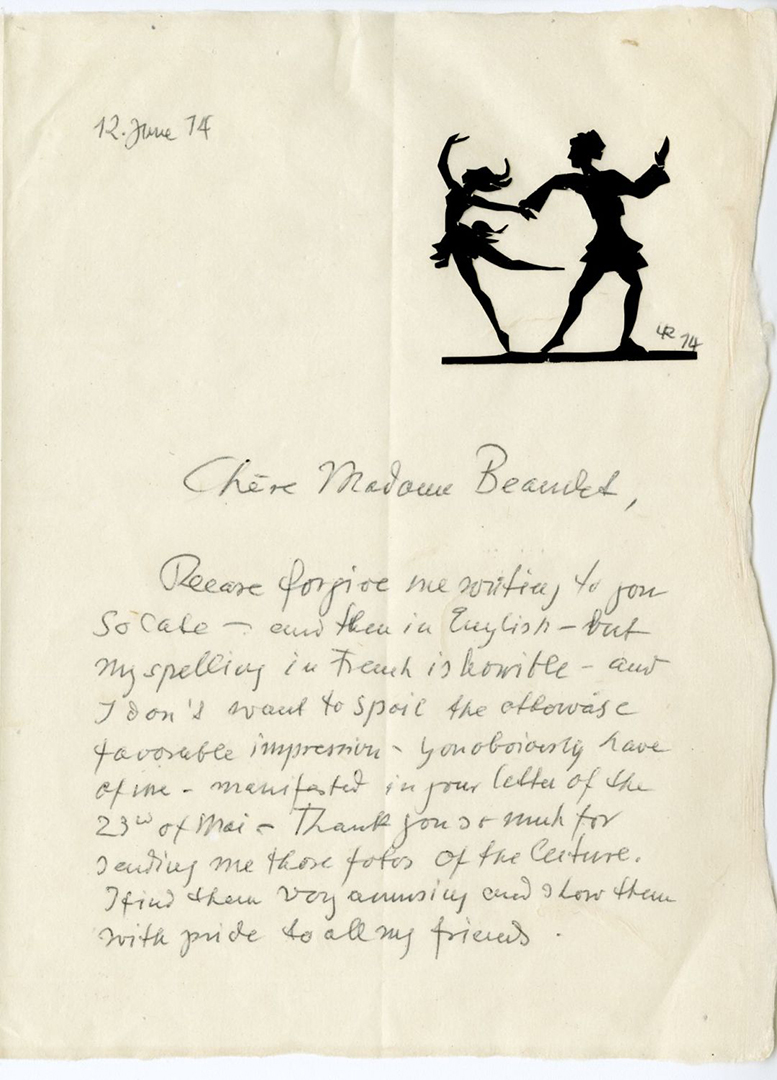 12. June 74
LR 74
Chère Madame Beaudet,
Please forgive me writing to you
so late – and then in English – but
my spelling in French is horrible – and
I don's want to spoil the otherwise
favorable impression – you obviously have
of me – manifested in your letter of the
23d of Mai – Thank you so much for
sending me those fotos of the lecture.
I find them very amusing and show them
with pride to all my friends.